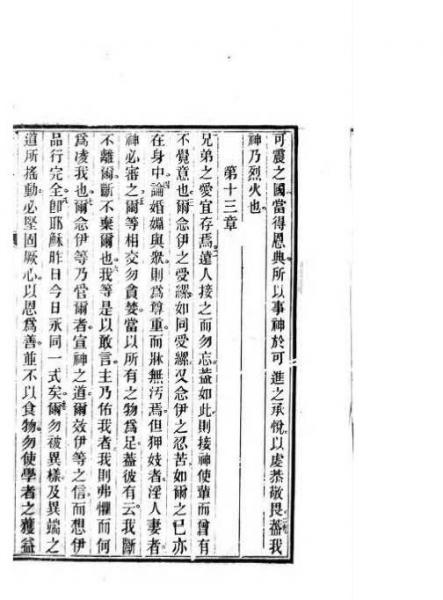 可震之國當得恩典所以事神於可進之承悅以虔恭敬畏蓋我
神乃烈火也
第十三章
兄弟之愛宜存焉遠人接之而勿忘蓋如此則接神使輩而曾有
不覺意也爾念伊之受縲如同受縲又念伊之忍苦如爾之已亦
在身中論婚姻與眾則為尊重而牀無污焉但狎妓者淫人妻者
神必審之爾等相交勿貪婪當以所有之物為足蓋彼有云我斷
不離爾斷不棄爾也我等是以敢言主乃佑我者我則弗懼而何
為凌我也爾念伊等乃管爾者宣神之道爾效伊等之信而想伊
品行完全卽耶穌昨日今日永同一式矣爾勿被異樣及異端之
道所搖動必堅固厥心以恩為善並不以食物勿使學者之獲益